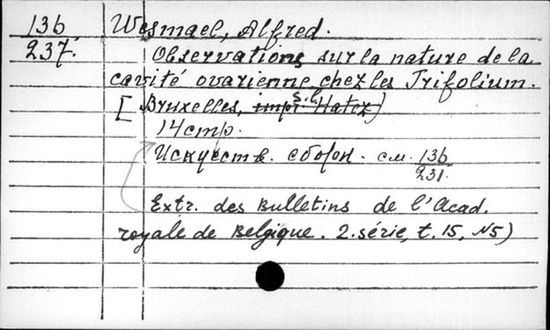 136 Wesmael, Alfred.
237. Observations sur la nature de la
cavité ovarienne chez les Trifolium.
[Bruxelles, impr. Hatez) s.l.
14 стр.
Искусств. сборн. см. 136
231.
Extr. des Bulletins de l'Acad.
royale de Belgique. 2. série, t. 15, N5)